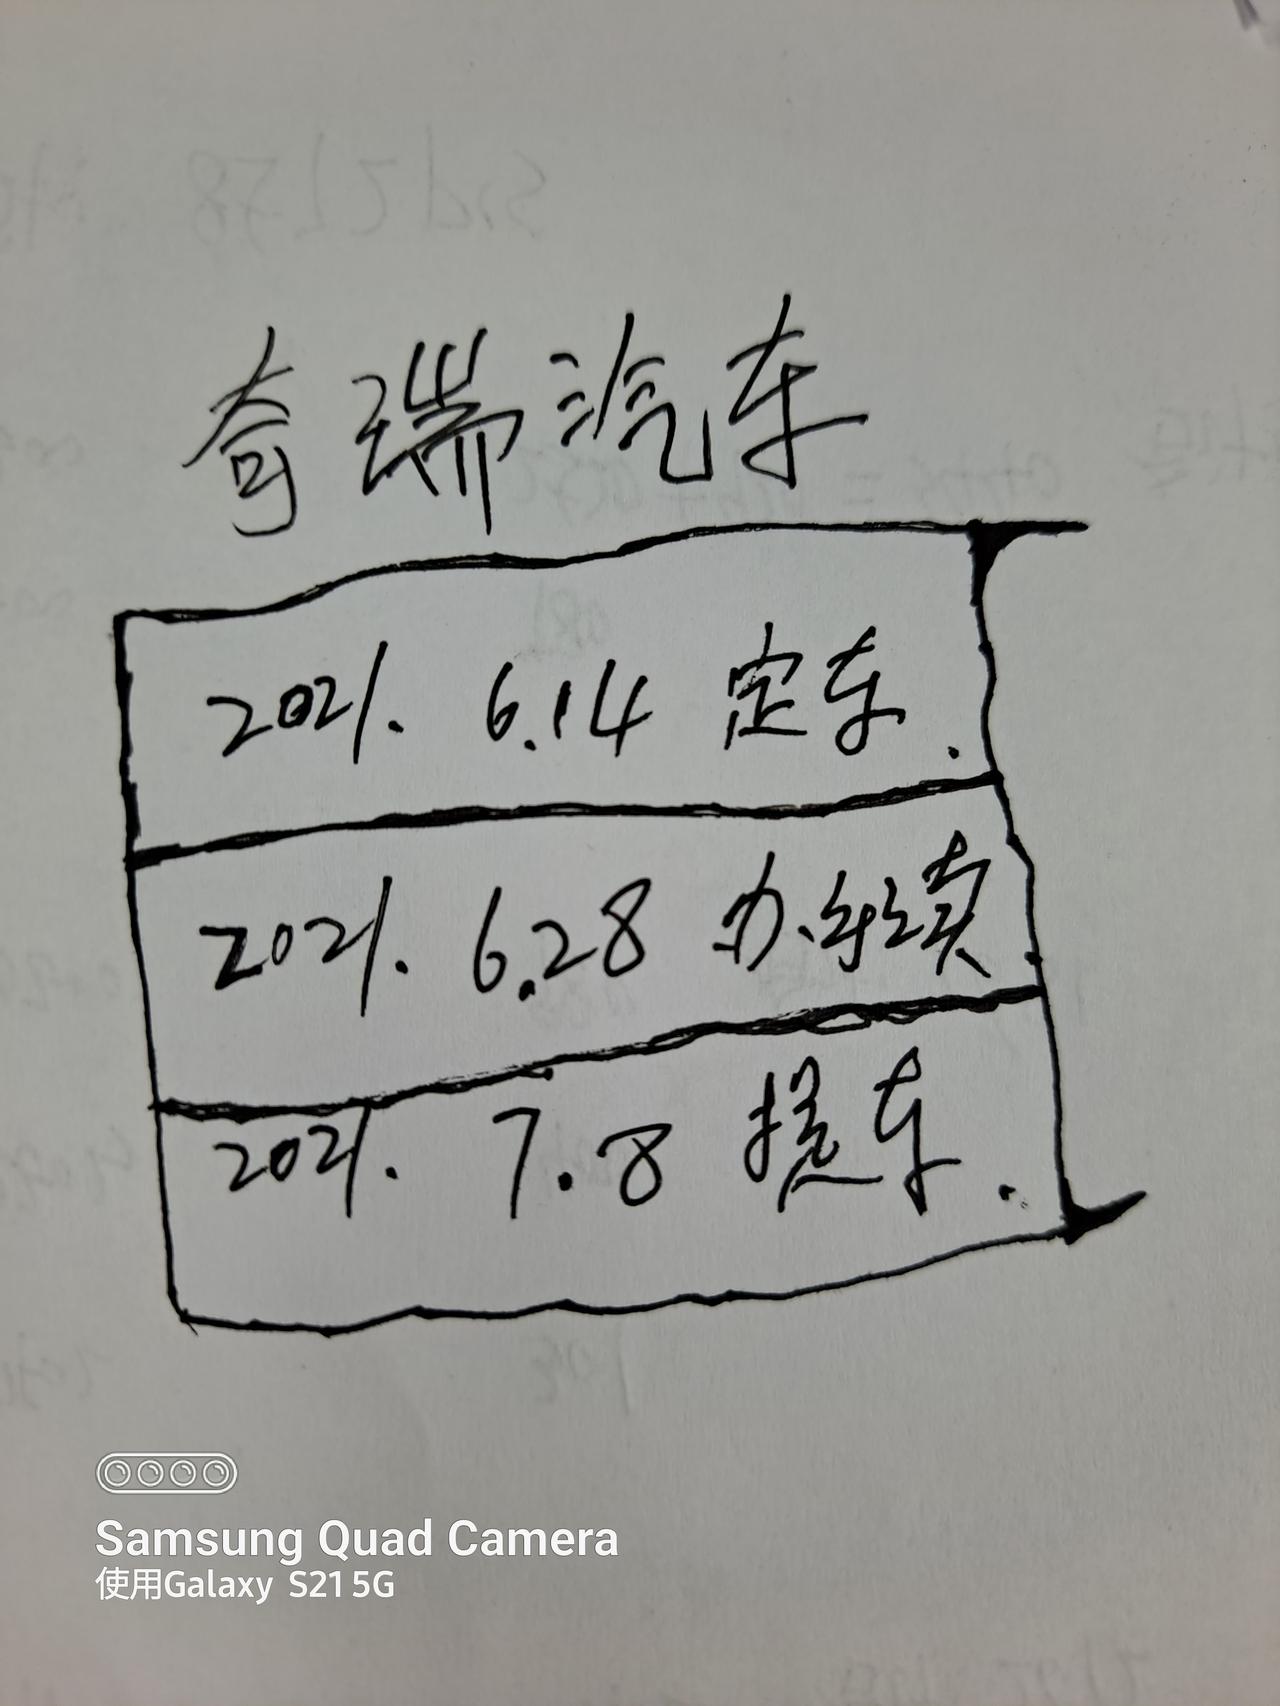 奇瑞汽车
2021. 6.14 定车.
2021. 6.28 办手续.
2021. 7.8 提车.
Samsung Quad Camera
使用Galaxy S21 5G